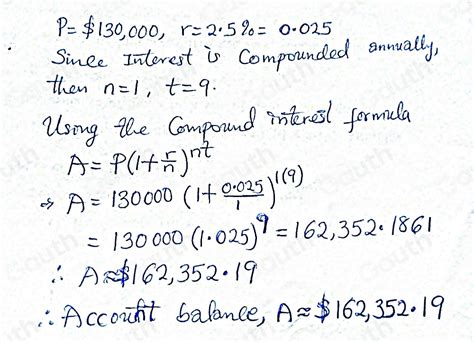 P=$130,000, r=2.5%=0.025
Since Interest is Compounded annually,
then n=1, t=9.
Using the Compound interest formula
A=P(1+r/n)^nt
⇒ A=130000 (1+0.025/1)^1(9)
= 130000 (1.025)^9 = 162,352.1861
∴ A≈$162,352.19
∴ Account balance, A≈$162,352.19